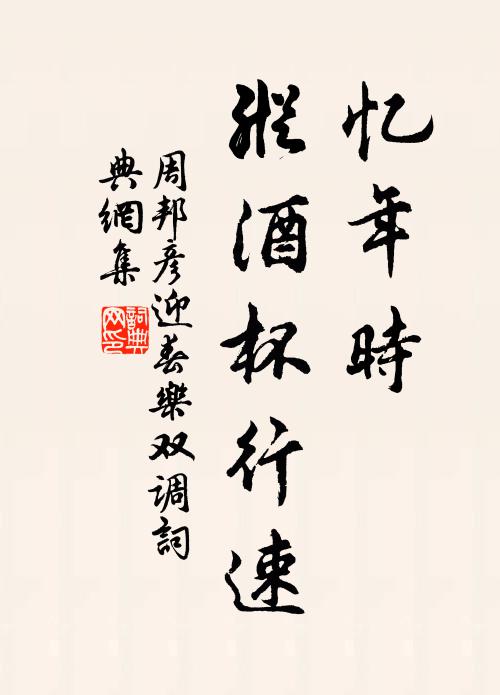 忆年時
縱酒杯行速
周邦彥迎春樂双调詞
典網集
詞典
网印